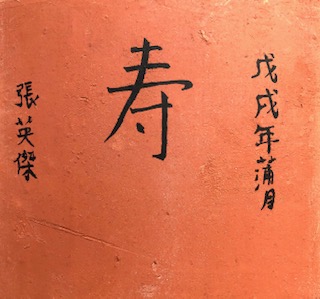 戊戌年蒲月
寿
張英傑